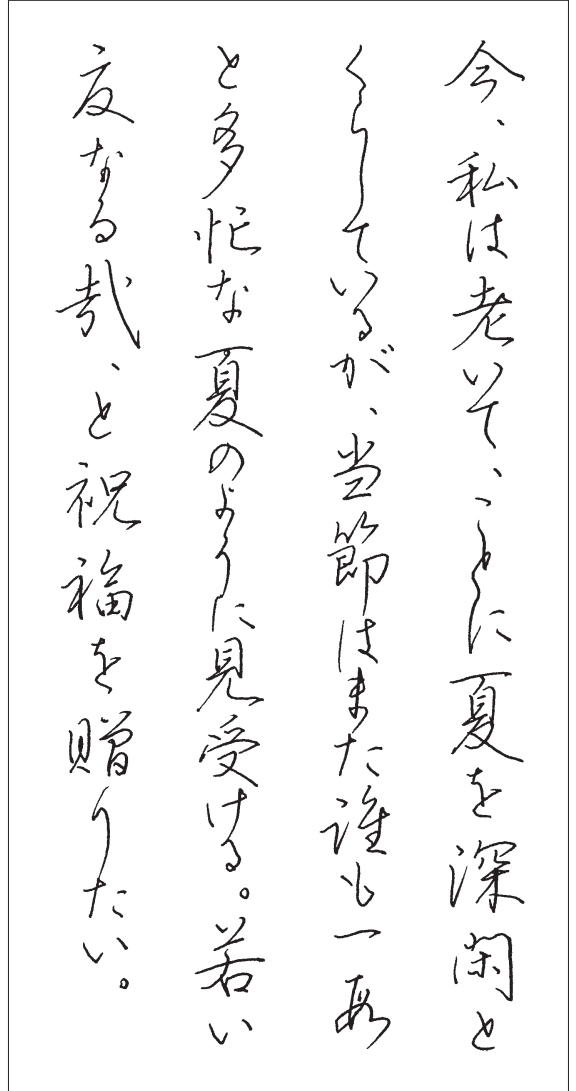 今、私は老いて、ことに夏を深閑と
くらしているが、当節はまた誰も一段
と多忙な夏のように見受ける。若い
友なる哉、と祝福を贈りたい。